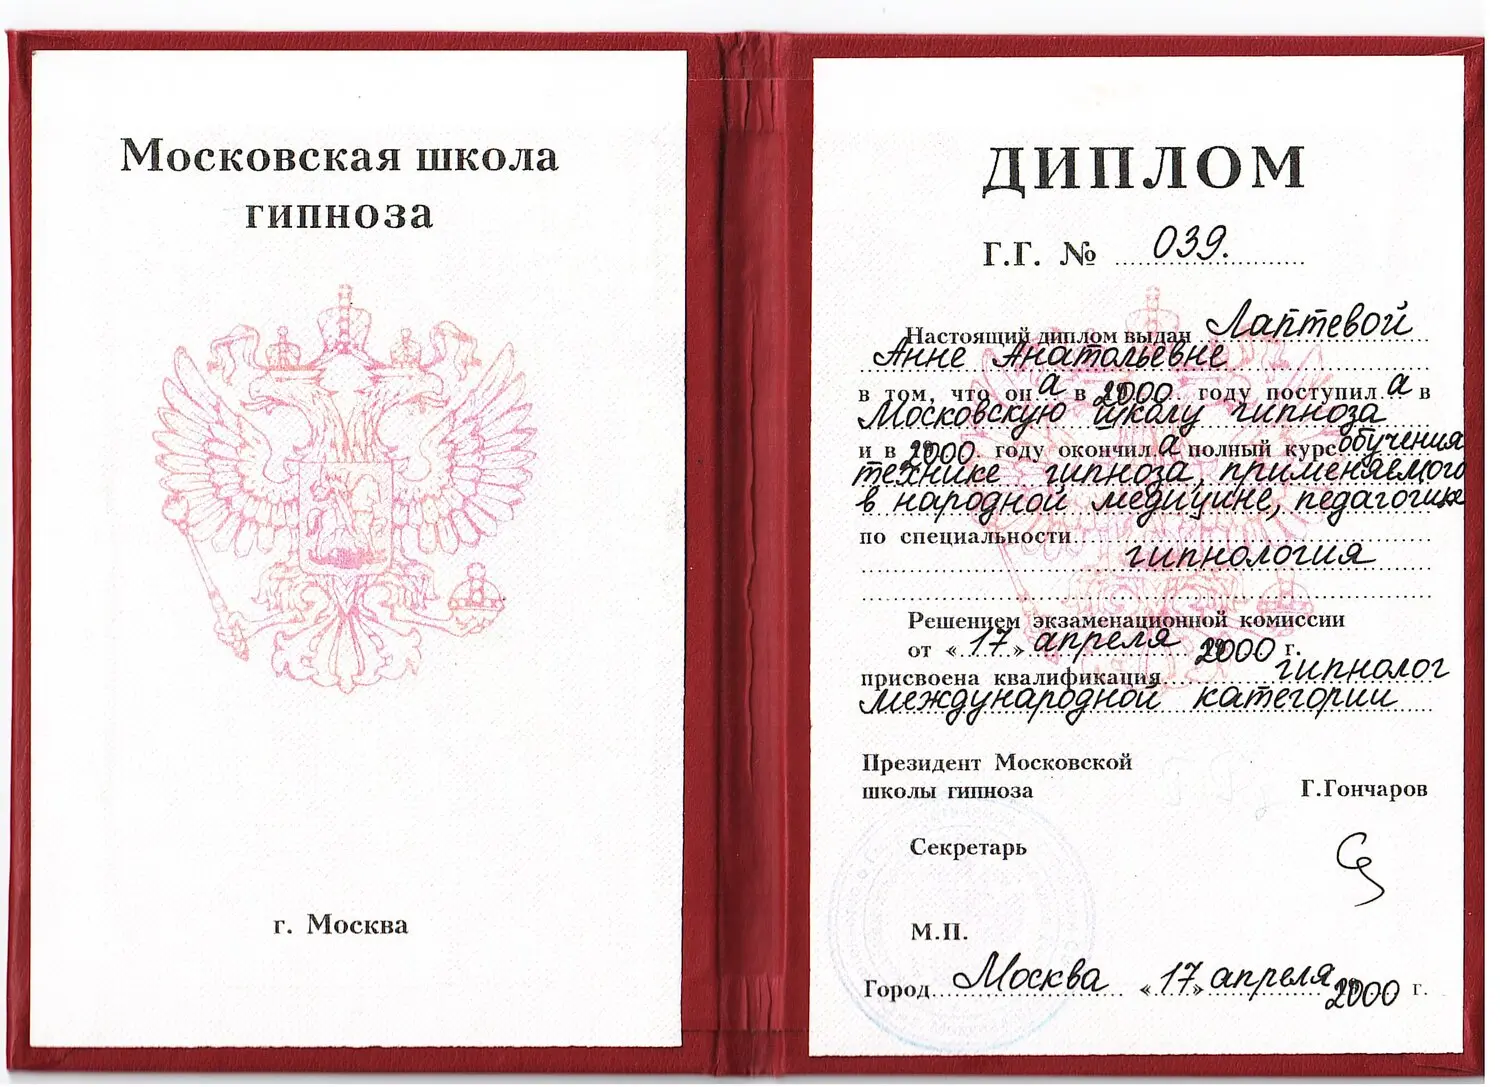 Московская школа
гипноза
г. Москва
ДИПЛОМ
Г.Г. № 039.
Настоящий диплом выдан Лаптевой
Анне Анатольевне
в том, что он а в 2000 году поступил а в
Московскую школу гипноза
и в 2000 году окончил а полный курс обучения
технике гипноза, применяемого
в народной медицине, педагогике
по специальности
гипнология
Решением экзаменационной комиссии
от «17» апреля 2000 г.
присвоена квалификация гипнолог
международной категории
Президент Московской
школы гипноза Г.Гончаров
Секретарь
М.П.
Город Москва «17» апреля 2000 г.